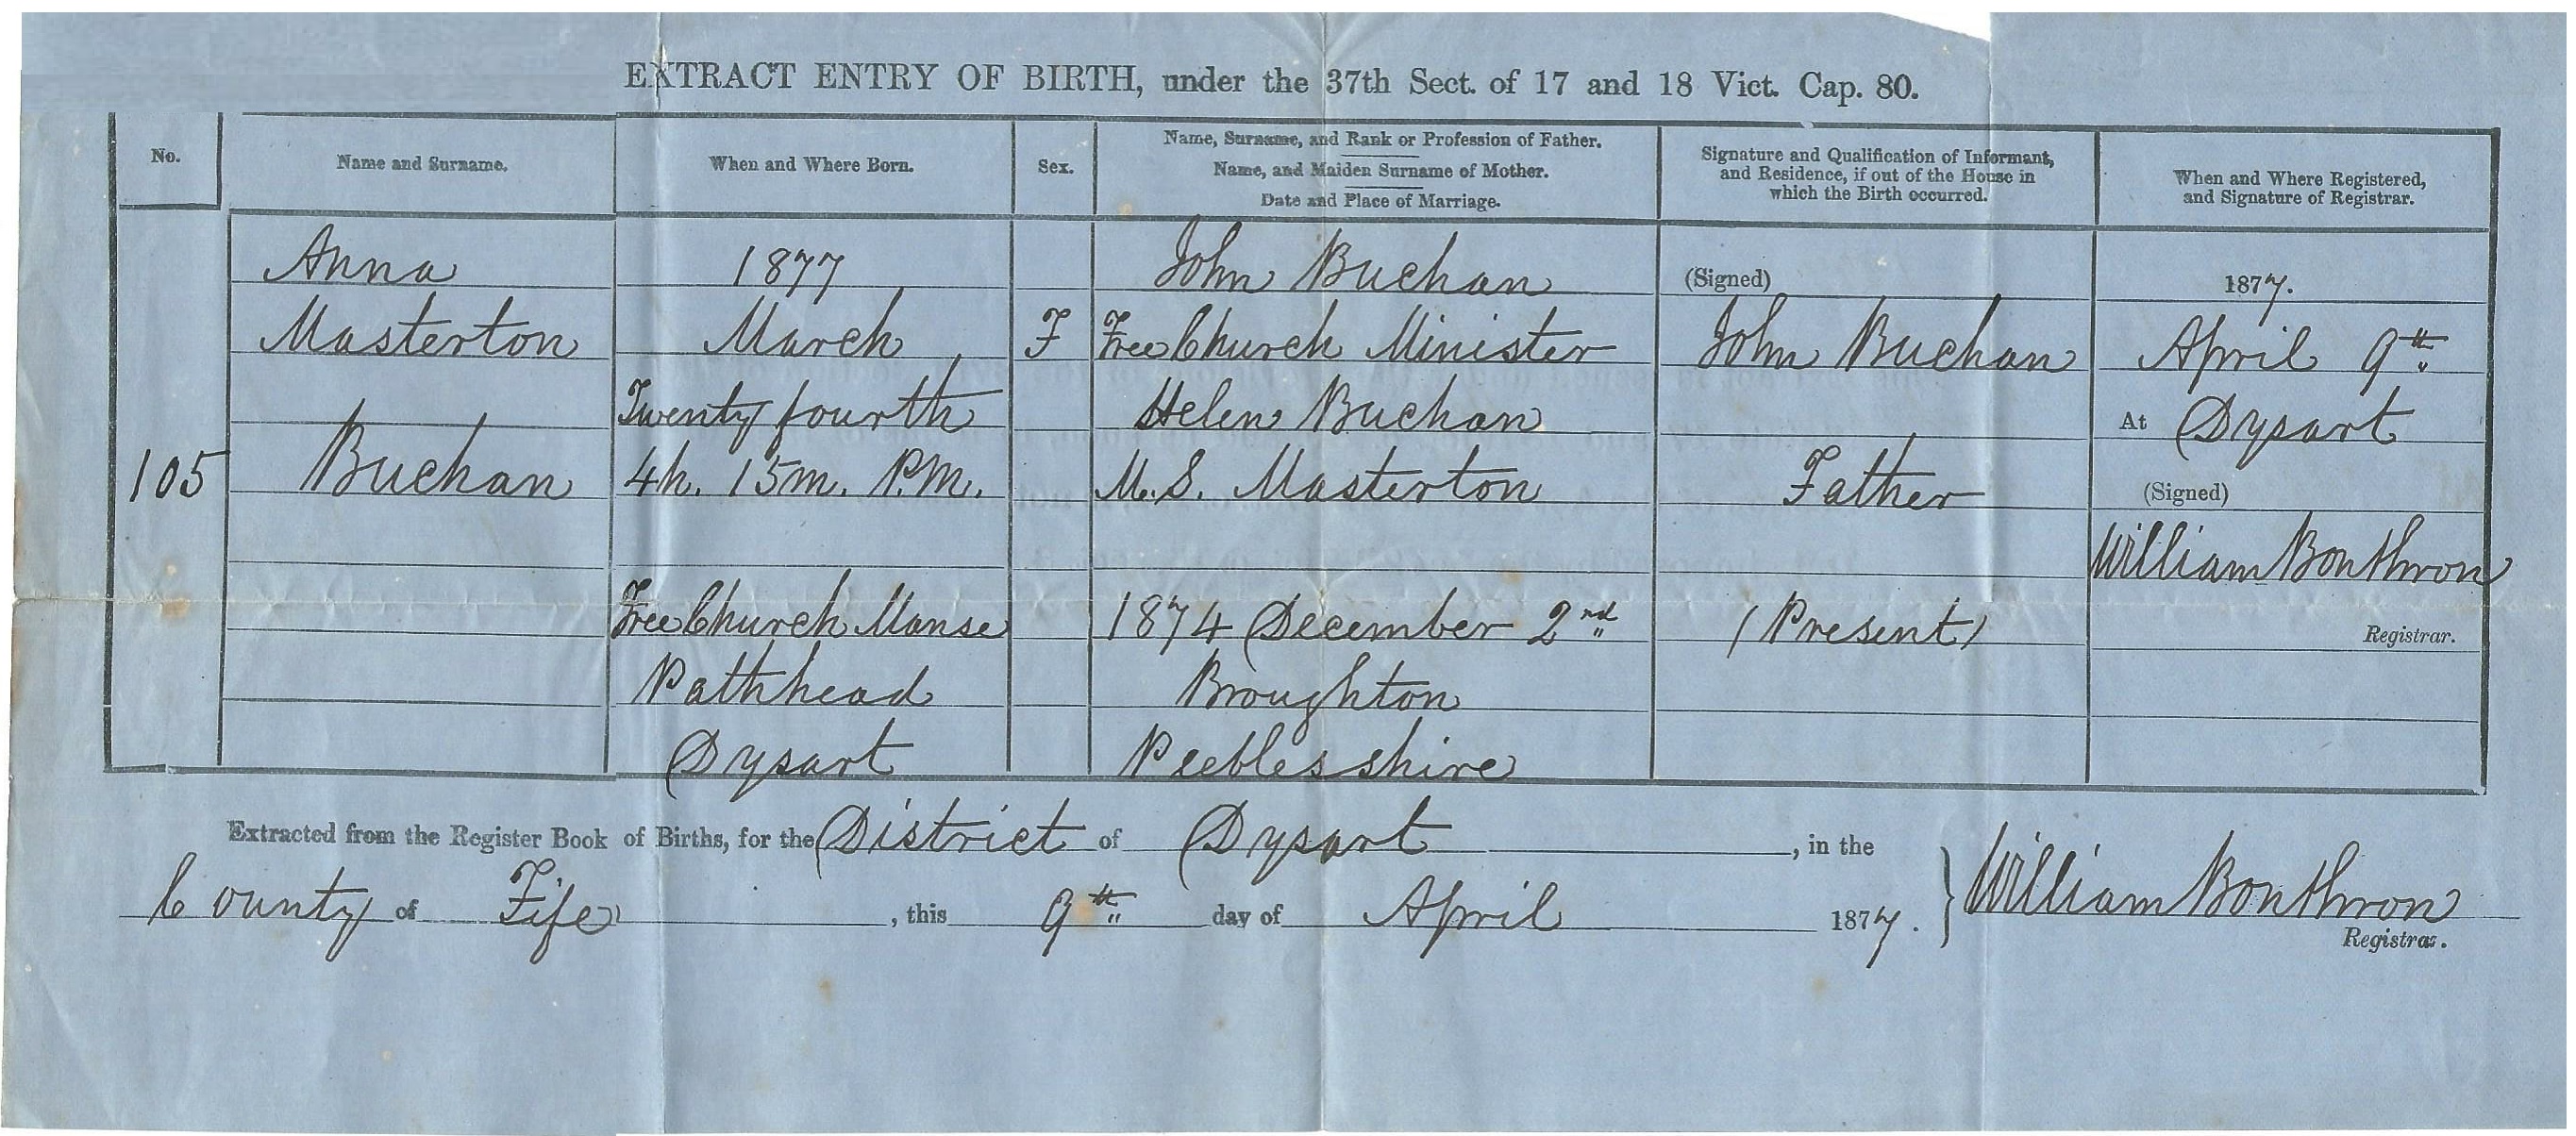 EXTRACT ENTRY OF BIRTH, under the 37th Sect. of 17 and 18 Vict. Cap. 80.
No.
Name and Surname.
When and Where Born.
Sex.
Name, Surname, and Rank or Profession of Father.
Name, and Maiden Surname of Mother.
Date and Place of Marriage.
Signature and Qualification of Informant,
and Residence, if out of the House in
which the Birth occurred.
When and Where Registered,
and Signature of Registrar.
105
Anna
Masterton
Buchan
1877
March
Twenty fourth
4h. 15m. P.M.
Free Church Manse
Pathhead
Dysart
F
John Buchan
Free Church Minister
Helen Buchan
M.S. Masterton
1874 December 2nd
Broughton
Peeblesshire
(Signed)
John Buchan
Father
(Present)
1877.
April 9th
At Dysart
(Signed)
William Bonthron
Registrar.
Extracted from the Register Book of Births, for the District of Dysart, in the
County of Fife, this 9th day of April 1877.
William Bonthron
Registrar.